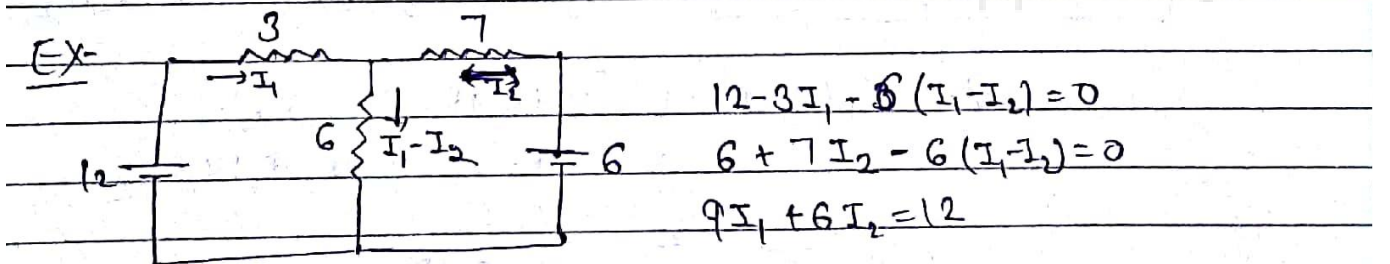 EX-
3
7
→I₁
I₂
6
I₁-I₂
12
6
12-3I₁-6(I₁-I₂)=0
6+7I₂-6(I₁-I₂)=0
9I₁+6I₂=12